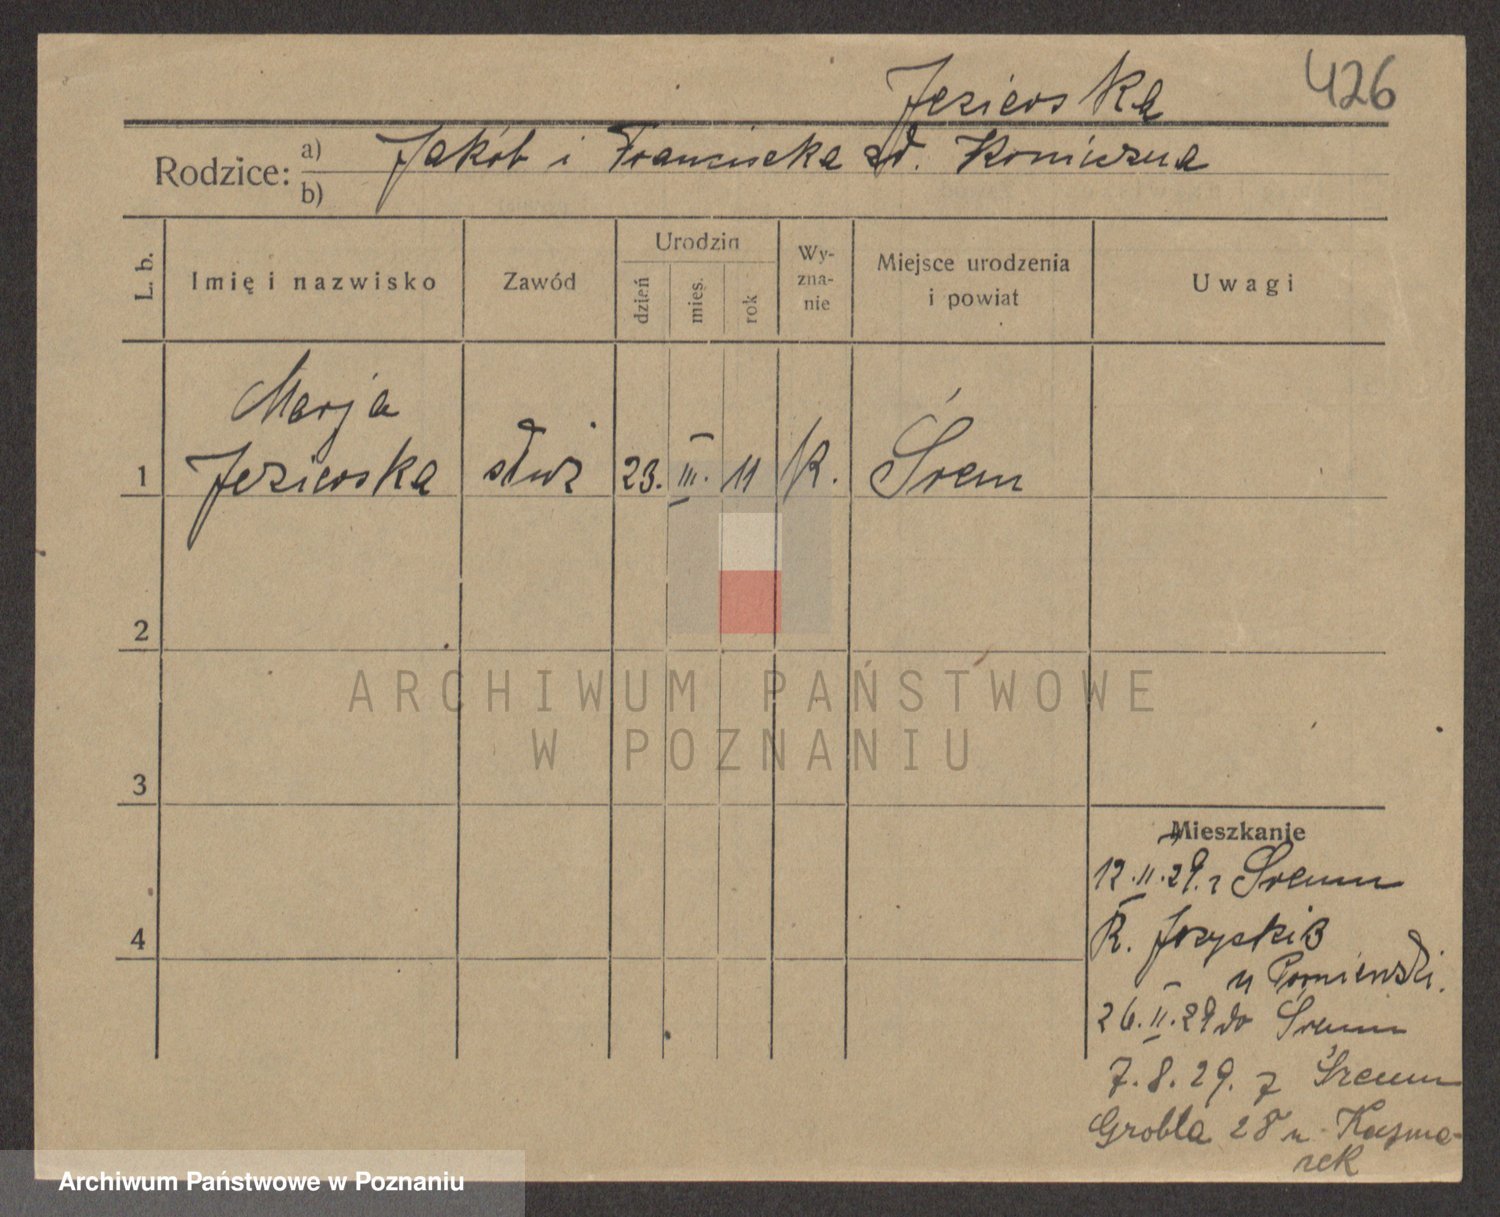 Jezierska 426
Rodzice: a) Jakób i Franciszka zd. Konieczna
b)
L. b.
Imię i nazwisko
Zawód
Urodzin
dzień
mies.
rok
Wy-
zna-
nie
Miejsce urodzenia
i powiat
Uwagi
Marja
1 Jezierska służ 23. III. 11 K. Śrem
2
3
4
Mieszkanie
12.II.29. z Śremu
R.
u
26.II.29 do Śremu
7.8.29. z Śremu
Grobla 28 u Kaczma-
rek
ARCHIWUM PAŃSTWOWE
W POZNANIU
Archiwum Państwowe w Poznaniu